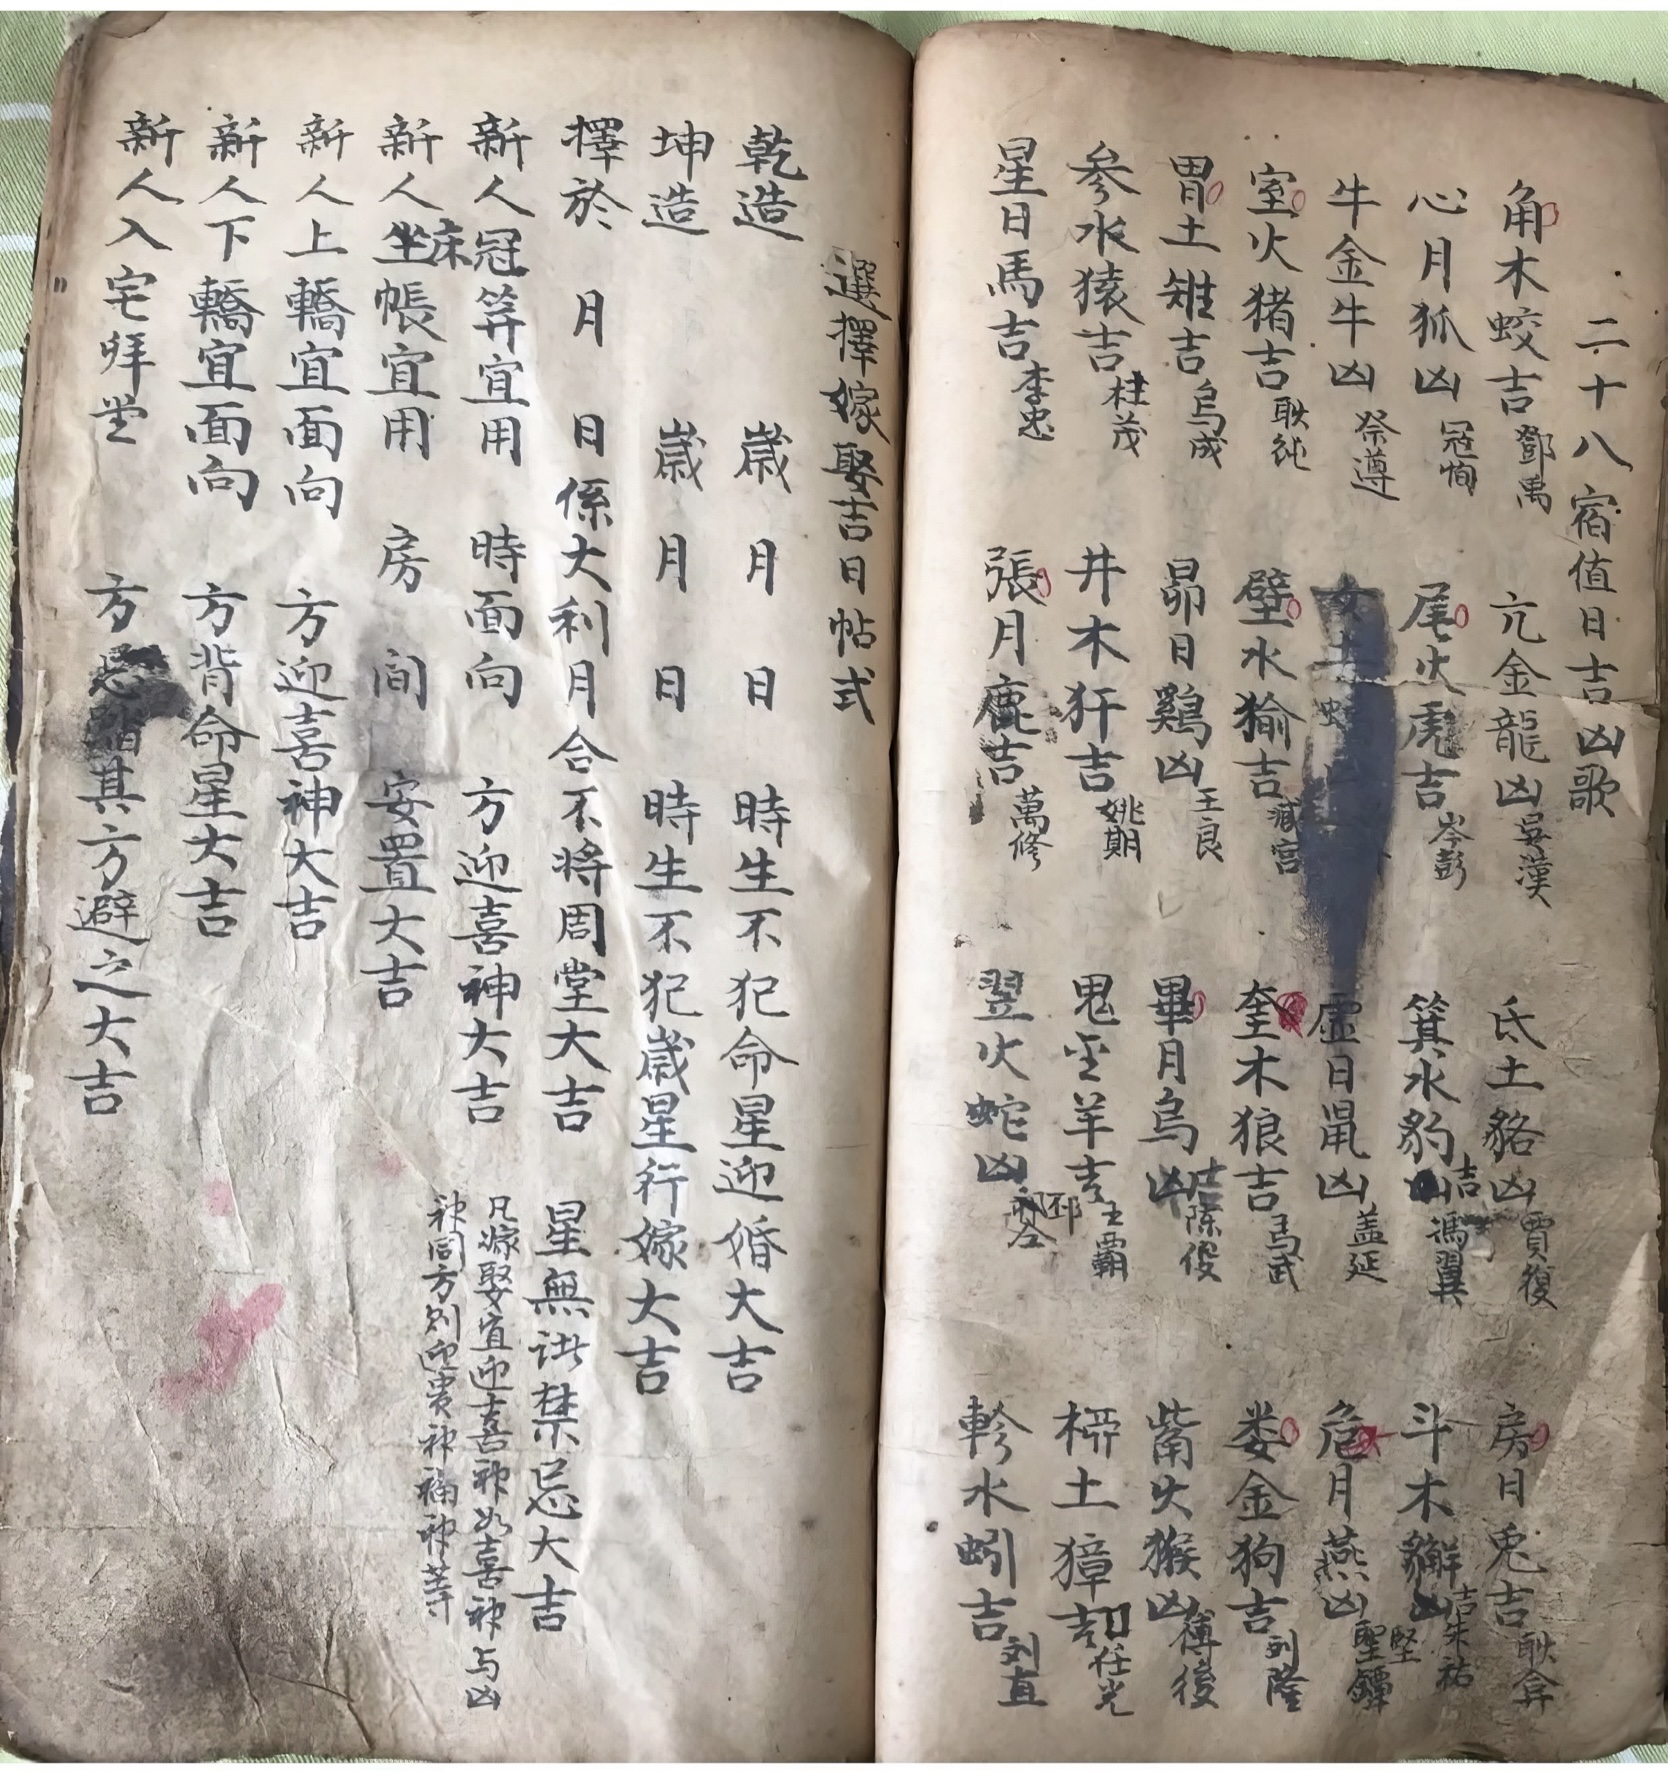 二十八宿值日吉凶歌
角木蛟吉 鄧禹 亢金龍凶 吳漢 氐土貉凶 賈復 房日兎吉 耿弇
心月狐凶 冦恂 尾火虎吉 岑彭 箕水豹吉 馮異 斗木獬吉 朱祐
牛金牛凶 祭遵 女土 虛日鼠凶 盖延 危月燕凶 堅鐔
室火猪吉 耿純 壁水貐吉 臧宮 奎木狼吉 馬武 娄金狗吉 刘隆
胃土雉吉 烏成 昴日鷄凶 王良 畢月烏吉 陈俊 觜火猴凶 傅後
参水猿吉 杜茂 井木犴吉 姚期 鬼金羊吉 王霸 柳土獐吉 任光
星日馬吉 李忠 張月鹿吉 萬修 翌火蛇凶 邳仝 軫水蚓吉 刘直
選擇嫁娶吉日帖式
乾造 歲 月 日 時生不犯命星迎婚大吉
坤造 歲 月 日 時生不犯歲星行嫁大吉
擇於 月 日係大利月合不将周堂大吉 星無訿禁忌大吉
新人冠笄宜用 時面向 方迎喜神大吉 凡嫁娶宜迎喜神如喜神与凶
神同方则迎贵神福神等
新人坐床帳宜用 房 间 安置大吉
新人上轎宜面向 方迎喜神大吉
新人下轎宜面向 方背命星大吉
新人入宅拜堂 方 其方避之大吉